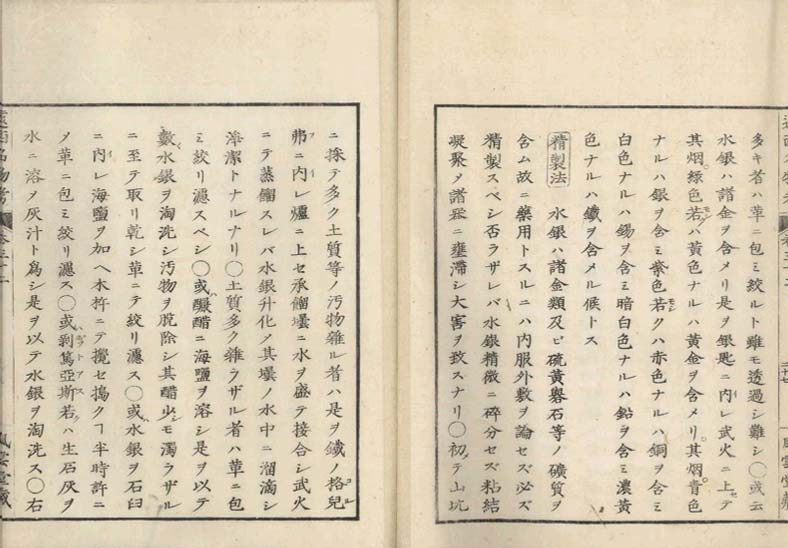 多キ者ハ革ニ包ミ絞ルト雖モ透過シ難シ〇或云
水銀ハ諸金ヲ含メリ是ヲ銀匙ニ内レ武火ニ上セテ
其烟綠色若クハ黄色ナルハ黄金ヲ含メリ其烟青色
ナルハ銀ヲ含ミ紫色若クハ赤色ナルハ銅ヲ含ミ
白色ナルハ錫ヲ含ミ暗白色ナルハ鉛ヲ含ミ濃黄
色ナルハ鐵ヲ含メル候トス
精製法 水銀ハ諸金類及ビ硫黄礜石等ノ礦質ヲ
含ム故ニ藥用トスルニハ内服外敷ヲ論セズ必ズ
精製スベシ否ラザレバ水銀精微ニ碎分セズ粘結
凝聚メ諸器ニ壅滯シ大害ヲ致スナリ〇初テ山坑
ニ採テ多ク土質等ノ汚物雜ル者ハ是ヲ鐵ノ格兒
弗ニ内レ爐ニ上セ承餾壜ニ水ヲ盛テ接合シ武火
ニテ蒸餾スレバ水銀升化メ其壜ノ水中ニ溜滴シ
淨潔トナルナリ〇土質多ク雜ラザル者ハ革ニ包
ミ絞リ濾スベシ〇或醲醋ニ海鹽ヲ溶シ是ヲ以テ
數水銀ヲ淘洗シ汚物ヲ脱除シ其醋少モ濁ラザル
ニ至テ取リ乾シ革ニテ絞リ濾ス〇或水銀ヲ石臼
ニ内レ海鹽ヲ加ヘ木杵ニテ攪セ搗クヿ半時許ニ
メ革ニ包ミ絞リ濾ス〇或剥篤亞斯若クハ生石灰ヲ
水ニ溶メ灰汁ト爲シ是ヲ以テ水銀ヲ淘洗ス〇右
遠西名物考
卷三十二
風雲堂藏